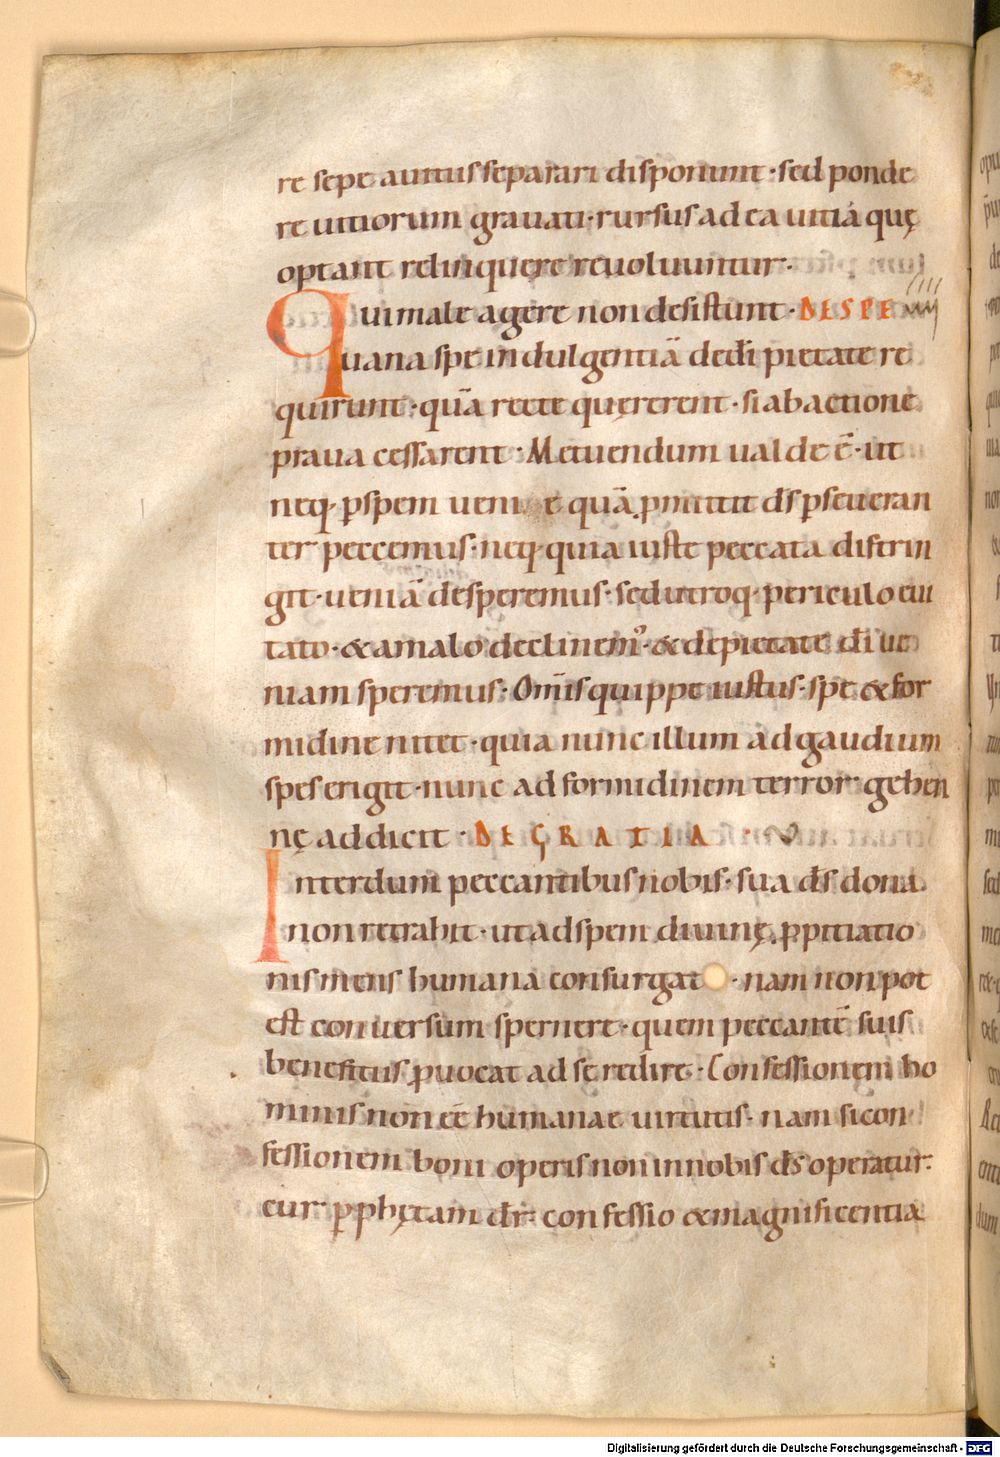 re sepe a uitiis separari disponunt · sed ponde
re uitiorum grauati · rursus ad ea uitia quę
optant relinquere reuoluuntur ·
Qui male agere non desistunt · DE SPE
uana spe indulgentiā de dī pietate re
quirunt · quā recte quęrerent · si ab actione
praua cessarent · Metuendum ualde ē · ut
neq· ꝑ spem ueni e quā ꝓmittit ds̄ ꝑseueran
ter peccemus · neq· quia iuste peccata distrin
git · ueniā desperemus · sed utroq· periculo eui
tato · & a malo declinemꝰ · & de pietate dī ue
niam speremus · Om̄is quippe iustus · spe & for
midine nitet · quia nunc illum ad gaudium
spes erigit · nunc ad formidinem terror gehen
nę addicit · DE GRATIA ·
Interdum peccantibus nobis · sua ds̄ dona
non retrahit · ut ad spem diuinę ꝓpitiatio
nis mens humana consurgat · nam non pot
est conuersum spernere · quem peccantē suis
benefitiis ꝓuocat ad se redire · Confessionem ho
minis non eē humanae uirtutis · nam si con
fessionem boni operis non in nobis ds̄ operatur ·
cur ꝓphętam dr̄ · confessio & magnificentia
Digitalisierung gefördert durch die Deutsche Forschungsgemeinschaft - DFG